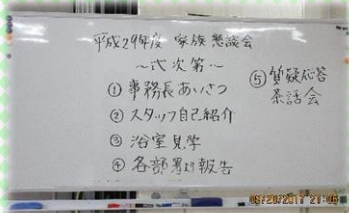 平成29年度 家族懇談会
～式次第～
① 事務長あいさつ
② スタッフ自己紹介
③ 浴室見学
④ 各部署より報告
⑤ 質疑応答
茶話会
09/20/2017 21:06